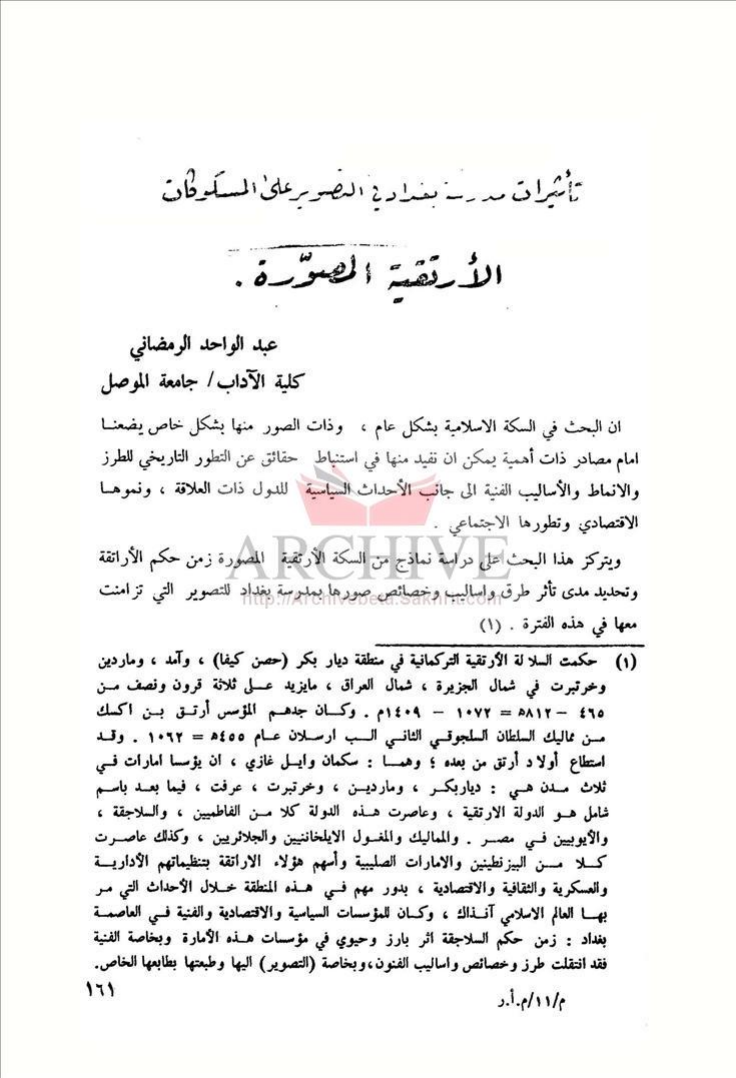 تأثيرات مدرسة بغداد في التصوير على المسكوكات
الأرتقية المصوّرة .
عبد الواحد الرمضاني
كلية الآداب/ جامعة الموصل
ان البحث في السكة الاسلامية بشكل عام ، وذات الصور منها بشكل خاص يضعنا
امام مصادر ذات أهمية يمكن ان نفيد منها في استنباط حقائق عن التطور التاريخي للطرز
والانماط والأساليب الفنية الى جانب الأحداث السياسية للدول ذات العلاقة ، ونموها
الاقتصادي وتطورها الاجتماعي .
ويتركز هذا البحث على دراسة نماذج من السكة الأرتقية المصورة زمن حكم الأراتقة
ARCHIVE
وتحديد مدى تأثر طرق واساليب وخصائص صورها بمدرسة بغداد للتصوير التي تزامنت
http://Archivebeta.Sakhrit.com
معها في هذه الفترة . (١)
(١) حكمت السلالة الأرتقية التركمانية في منطقة ديار بكر (حصن كيفا) ، وآمد ، وماردين
وخرتبرت في شمال الجزيرة ، شمال العراق ، مايزيد عـلى ثلاثة قرون ونصف من
٤٦٥ – ٨١٢ه = ١٠٧٢ – ١٤٠٩م . وكـان جدهم المؤسس أرتق بـن اكسك
مـن مماليك السلطان السلجوقي الثاني الـب ارسلان عام ٤٥٥ه = ١٠٦٢ . وقـد
استطاع أولاد أرتق من بعده ؛ وهمـا : سكمان وايـل غازي ، ان يؤسسا امارات فـي
ثلاث مـدن هـي : دياربكر ، وماردين ، وخرتبرت ، عرفت ، فيما بعـد باسم
شامل هـو الدولة الارتقية ، وعاصرت هـذه الدولة كلا مـن الفاطميين ، والسلاجقة ،
والأيوبيين فـي مصـر . والمماليك والمغـول الايلخانيين والجلائريين ، وكذلك عاصـرت
كـلا مـن البيزنطينين والامارات الصليبية وأسهم هؤلاء الاراتقة بتنظيماتهم الأداريـة
والعسكرية والثقافية والاقتصادية ، بدور مهم فـي هـذه المنطقة خلال الأحداث التي مـر
بهـا العالم الاسلامي آنـذاك ، وكـان للمؤسسات السياسية والاقتصادية والفنية فـي العاصمـة
بغداد : زمن حكم السلاجقة اثر بارز وحيوي في مؤسسات هـذه الأمارة وبخاصة الفنية
فقد انتقلت طرز وخصائص واساليب الفنون،وبخاصة (التصوير) اليها وطبعتها بطابعها الخاص.
١٦١
م/١١/م.أ.ر